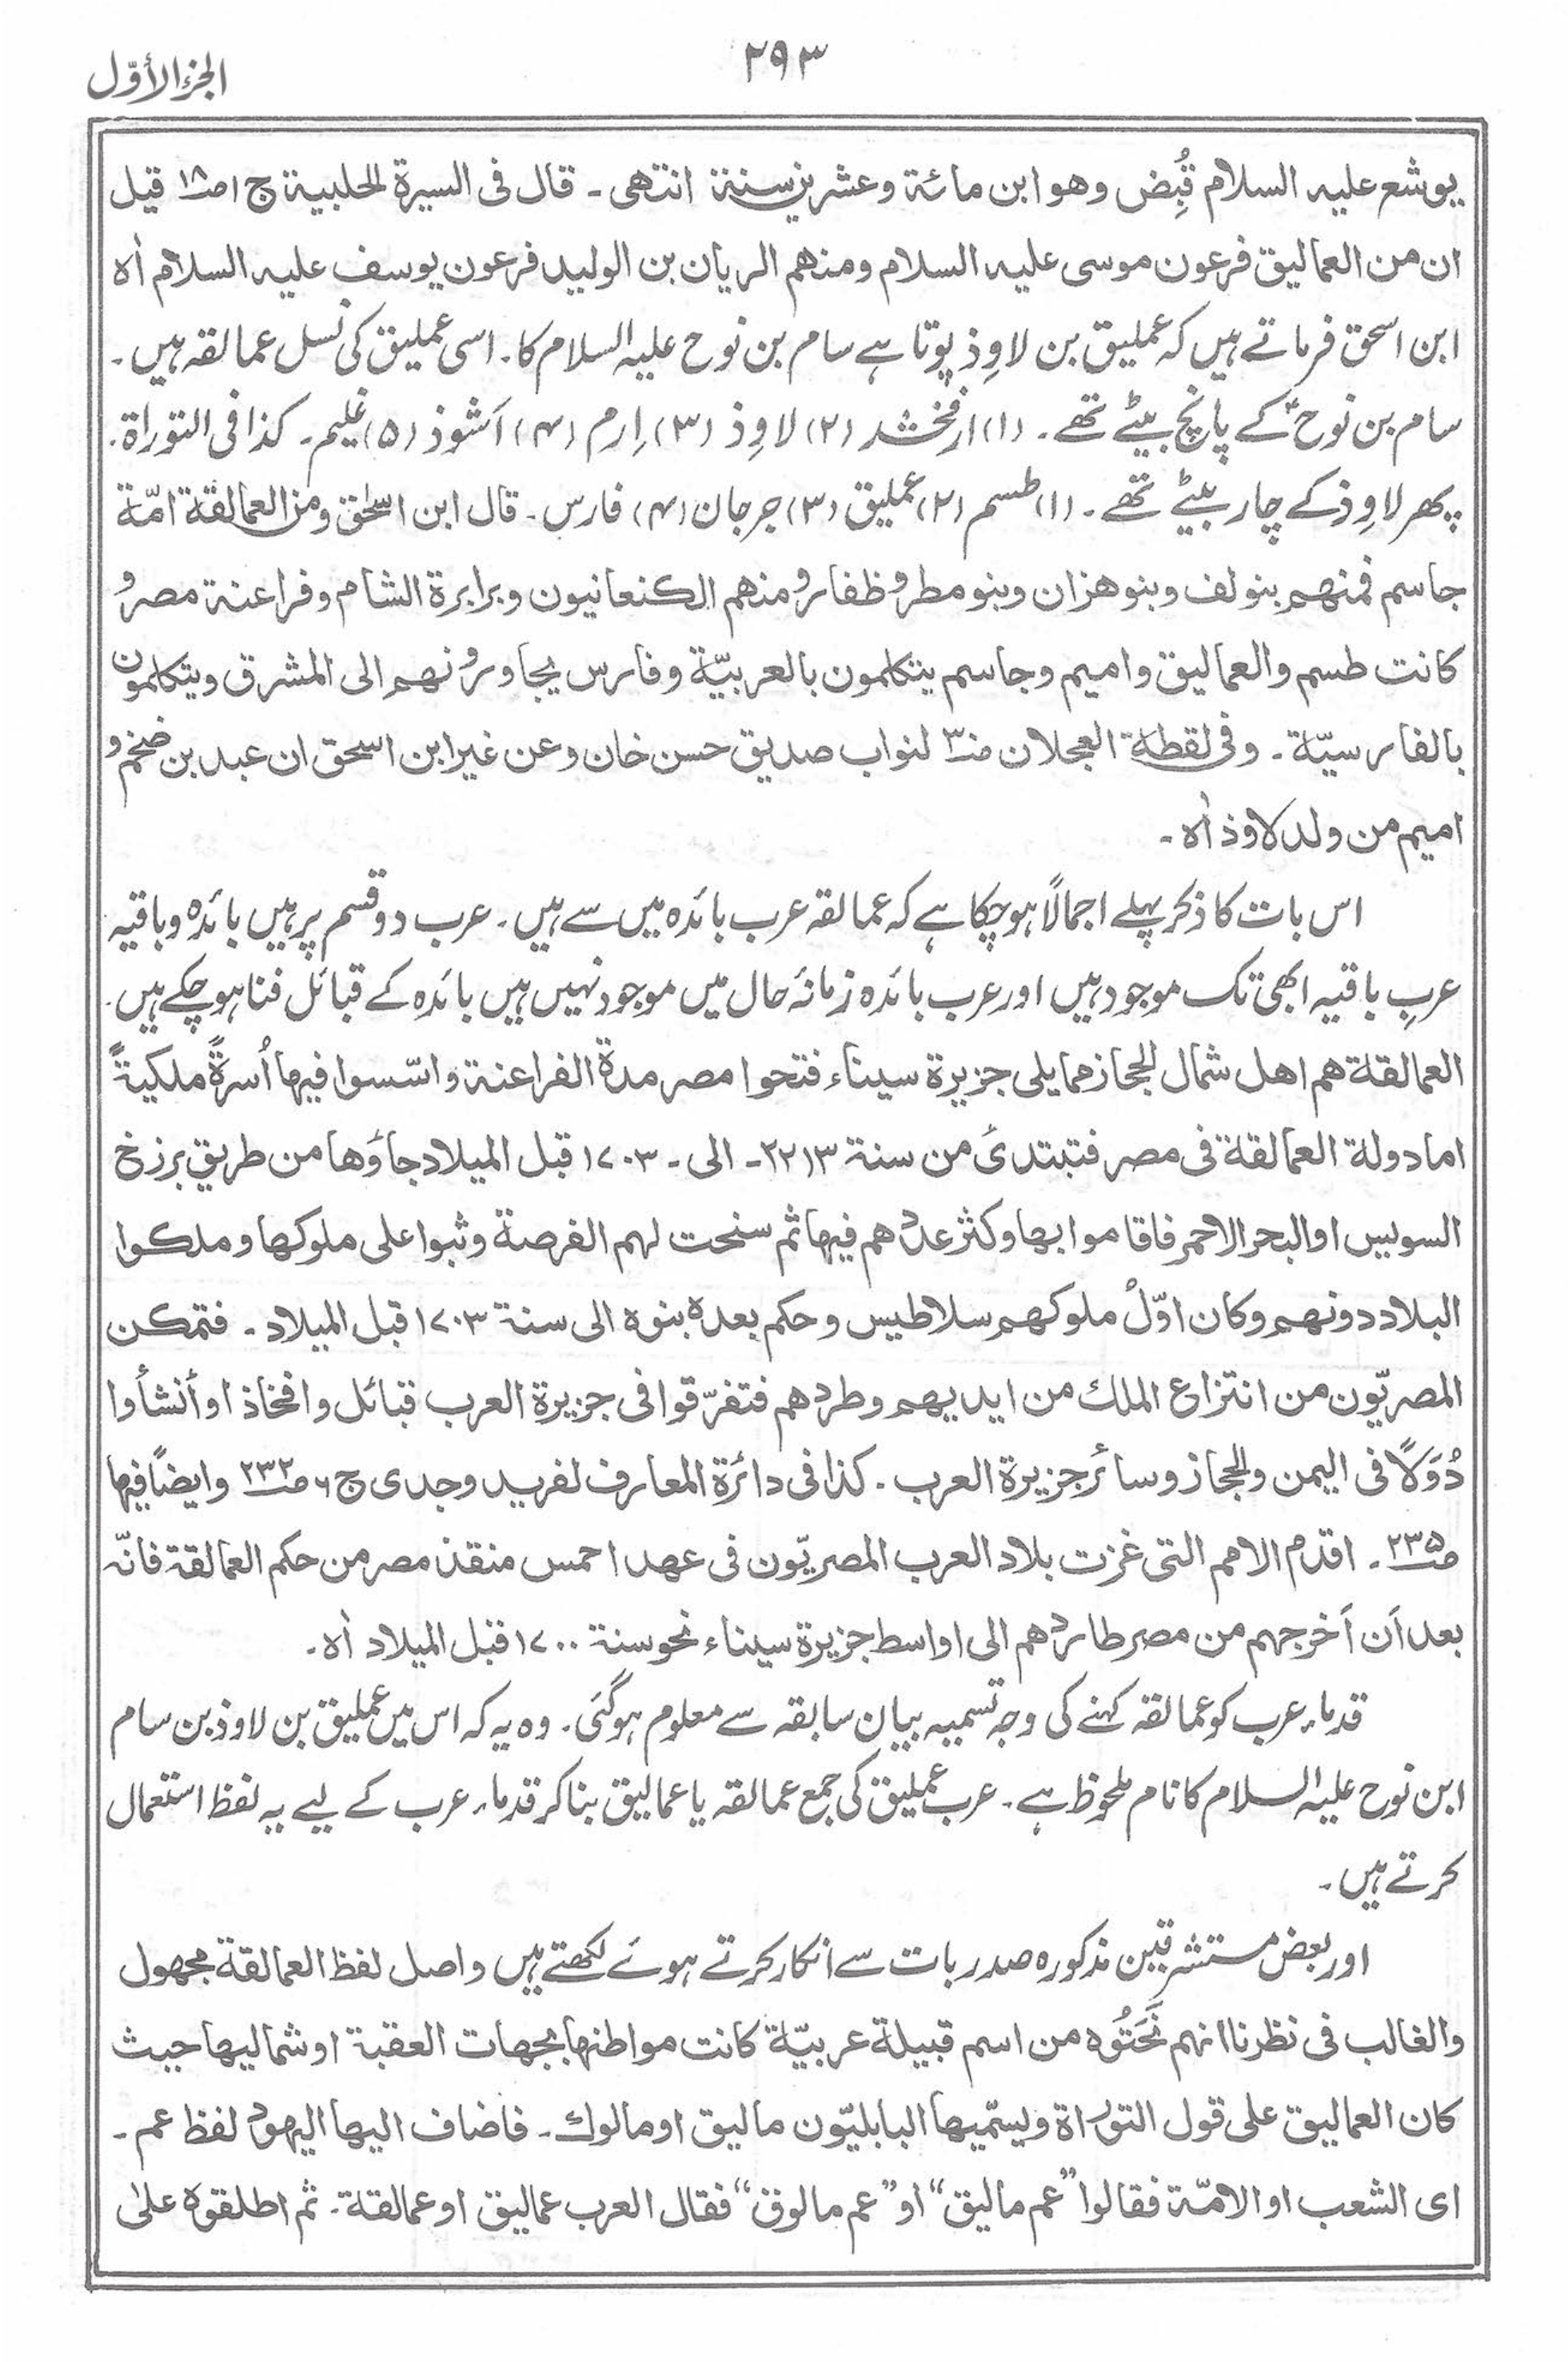 ۲۹۳
الجزء الأوّل
یوشع علیہ السلام قُبِض وھو ابن مائۃ وعشرین سنۃ انتھی ۔ قال فی السیرۃ الحلبیۃ ج ۱ ص۱۸ قیل
ان من العمالیق فرعون موسی علیہ السلام ومنھم الریان بن الولید فرعون یوسف علیہ السلام اٰہ
ابن اسحٰق فرماتے ہیں کہ عملیق بن لاوِذ پوتا ہے سام بن نوح علیہ السلام کا۔ اسی عملیق کی نسل عمالقہ ہیں۔
سام بن نوح ؑ کے پانچ بیٹے تھے۔ (۱) ارفخشد (۲) لاوِذ (۳) اِرم (۴) اَشوذ (۵) غلیم۔ کذا فی التوراۃ۔
پھر لاوِذ کے چار بیٹے تھے۔ (۱) طسم (۲) عملیق (۳) جرجان (۴) فارس۔ قال ابن اسحٰق ومن العمالقۃ امّۃ
جاسم فمنھم بنو لف وبنو ھزان وبنو مطر و ظفار و منھم الکنعانیون وبرابرۃ الشام وفراعنۃ مصر و
کانت طسم والعمالیق وامیم وجاسم یتکلمون بالعربیّۃ وفارس یجاورونھم الی المشرق ویتکلمون
بالفارسیّۃ ۔ وفی لقطۃ العجلان ص۳ لنواب صدیق حسن خان وعن غیر ابن اسحٰق ان عبد بن ضخم و
امیم من ولد لاوذ اٰہ ۔
اس بات کا ذکر پہلے اجمالًا ہوچکا ہے کہ عمالقہ عرب بائدہ میں سے ہیں۔ عرب دو قسم پر ہیں بائدہ وباقیہ
عربِ باقیہ ابھی تک موجود ہیں اور عرب بائدہ زمانۂ حال میں موجود نہیں ہیں بائدہ کے قبائل فنا ہوچکے ہیں۔
العمالقۃ ھم اھل شمال الحجاز مما یلی جزیرۃ سیناء فتحوا مصر مدۃ الفراعنۃ واسّسوا فیھا اُسرۃً ملکیۃً
اما دولۃ العمالقۃ فی مصر فتبتدئ من سنۃ ۲۲۱۳ ۔ الی ۔ ۱۷۰۳ قبل المیلاد جاؤھا من طریق برزخ
السویس او البحر الاحمر فاقاموا بھا وکثر عددھم فیھا ثم سنحت لھم الفرصۃ وثبوا علی ملوکھا وملکوا
البلاد دونھم وکان اوّلُ ملوکھم سلاطیس وحکم بعدہ بنوہ الی سنۃ ۱۷۰۳ قبل المیلاد ۔ فتمکن
المصریّون من انتزاع الملک من ایدیھم وطردھم فتفرّقوا فی جزیرۃ العرب قبائل وافخاذا وأنشأوا
دُوَلًا فی الیمن والحجاز وسائر جزیرۃ العرب ۔ کذا فی دائرۃ المعارف لفرید وجدی ج ۶ ص۲۳۲ وایضًا فیھا
ص۲۳۵ ۔ اقدم الامم التی غزت بلاد العرب المصریّون فی عھد احمس منقذ مصر من حکم العمالقۃ فانّہ
بعد اَن اَخرجھم من مصر طاردھم الی اواسط جزیرۃ سیناء نحو سنۃ ۱۷۰۰ قبل المیلاد اٰہ ۔
قدماء عرب کو عمالقہ کہنے کی وجہ تسمیہ بیانِ سابقہ سے معلوم ہوگئی۔ وہ یہ کہ اس میں عملیق بن لاوذ بن سام
ابن نوح علیہ السلام کا نام ملحوظ ہے۔ عرب عملیق کی جمع عمالقہ یا عمالیق بنا کر قدماء عرب کے لیے یہ لفظ استعمال
کرتے ہیں۔
اور بعض مستشرقین مذکورہ صدر بات سے انکار کرتے ہوئے لکھتے ہیں واصل لفظ العمالقۃ مجھول
والغالب فی نظرنا انھم نَحَتُوہ من اسم قبیلۃ عربیّۃ کانت مواطنھا بجھات العقبۃ او شمالیھا حیث
کان العمالیق علی قول التوراۃ ویسمّیھا البابلیّون مالیق او مالوک ۔ فاضاف الیھا الیھود لفظ عم ۔
ای الشعب او الامّۃ فقالوا ”عم مالیق“ او ”عم مالوق“ فقال العرب عمالیق او عمالقۃ ۔ ثم اطلقوہ علیٰ